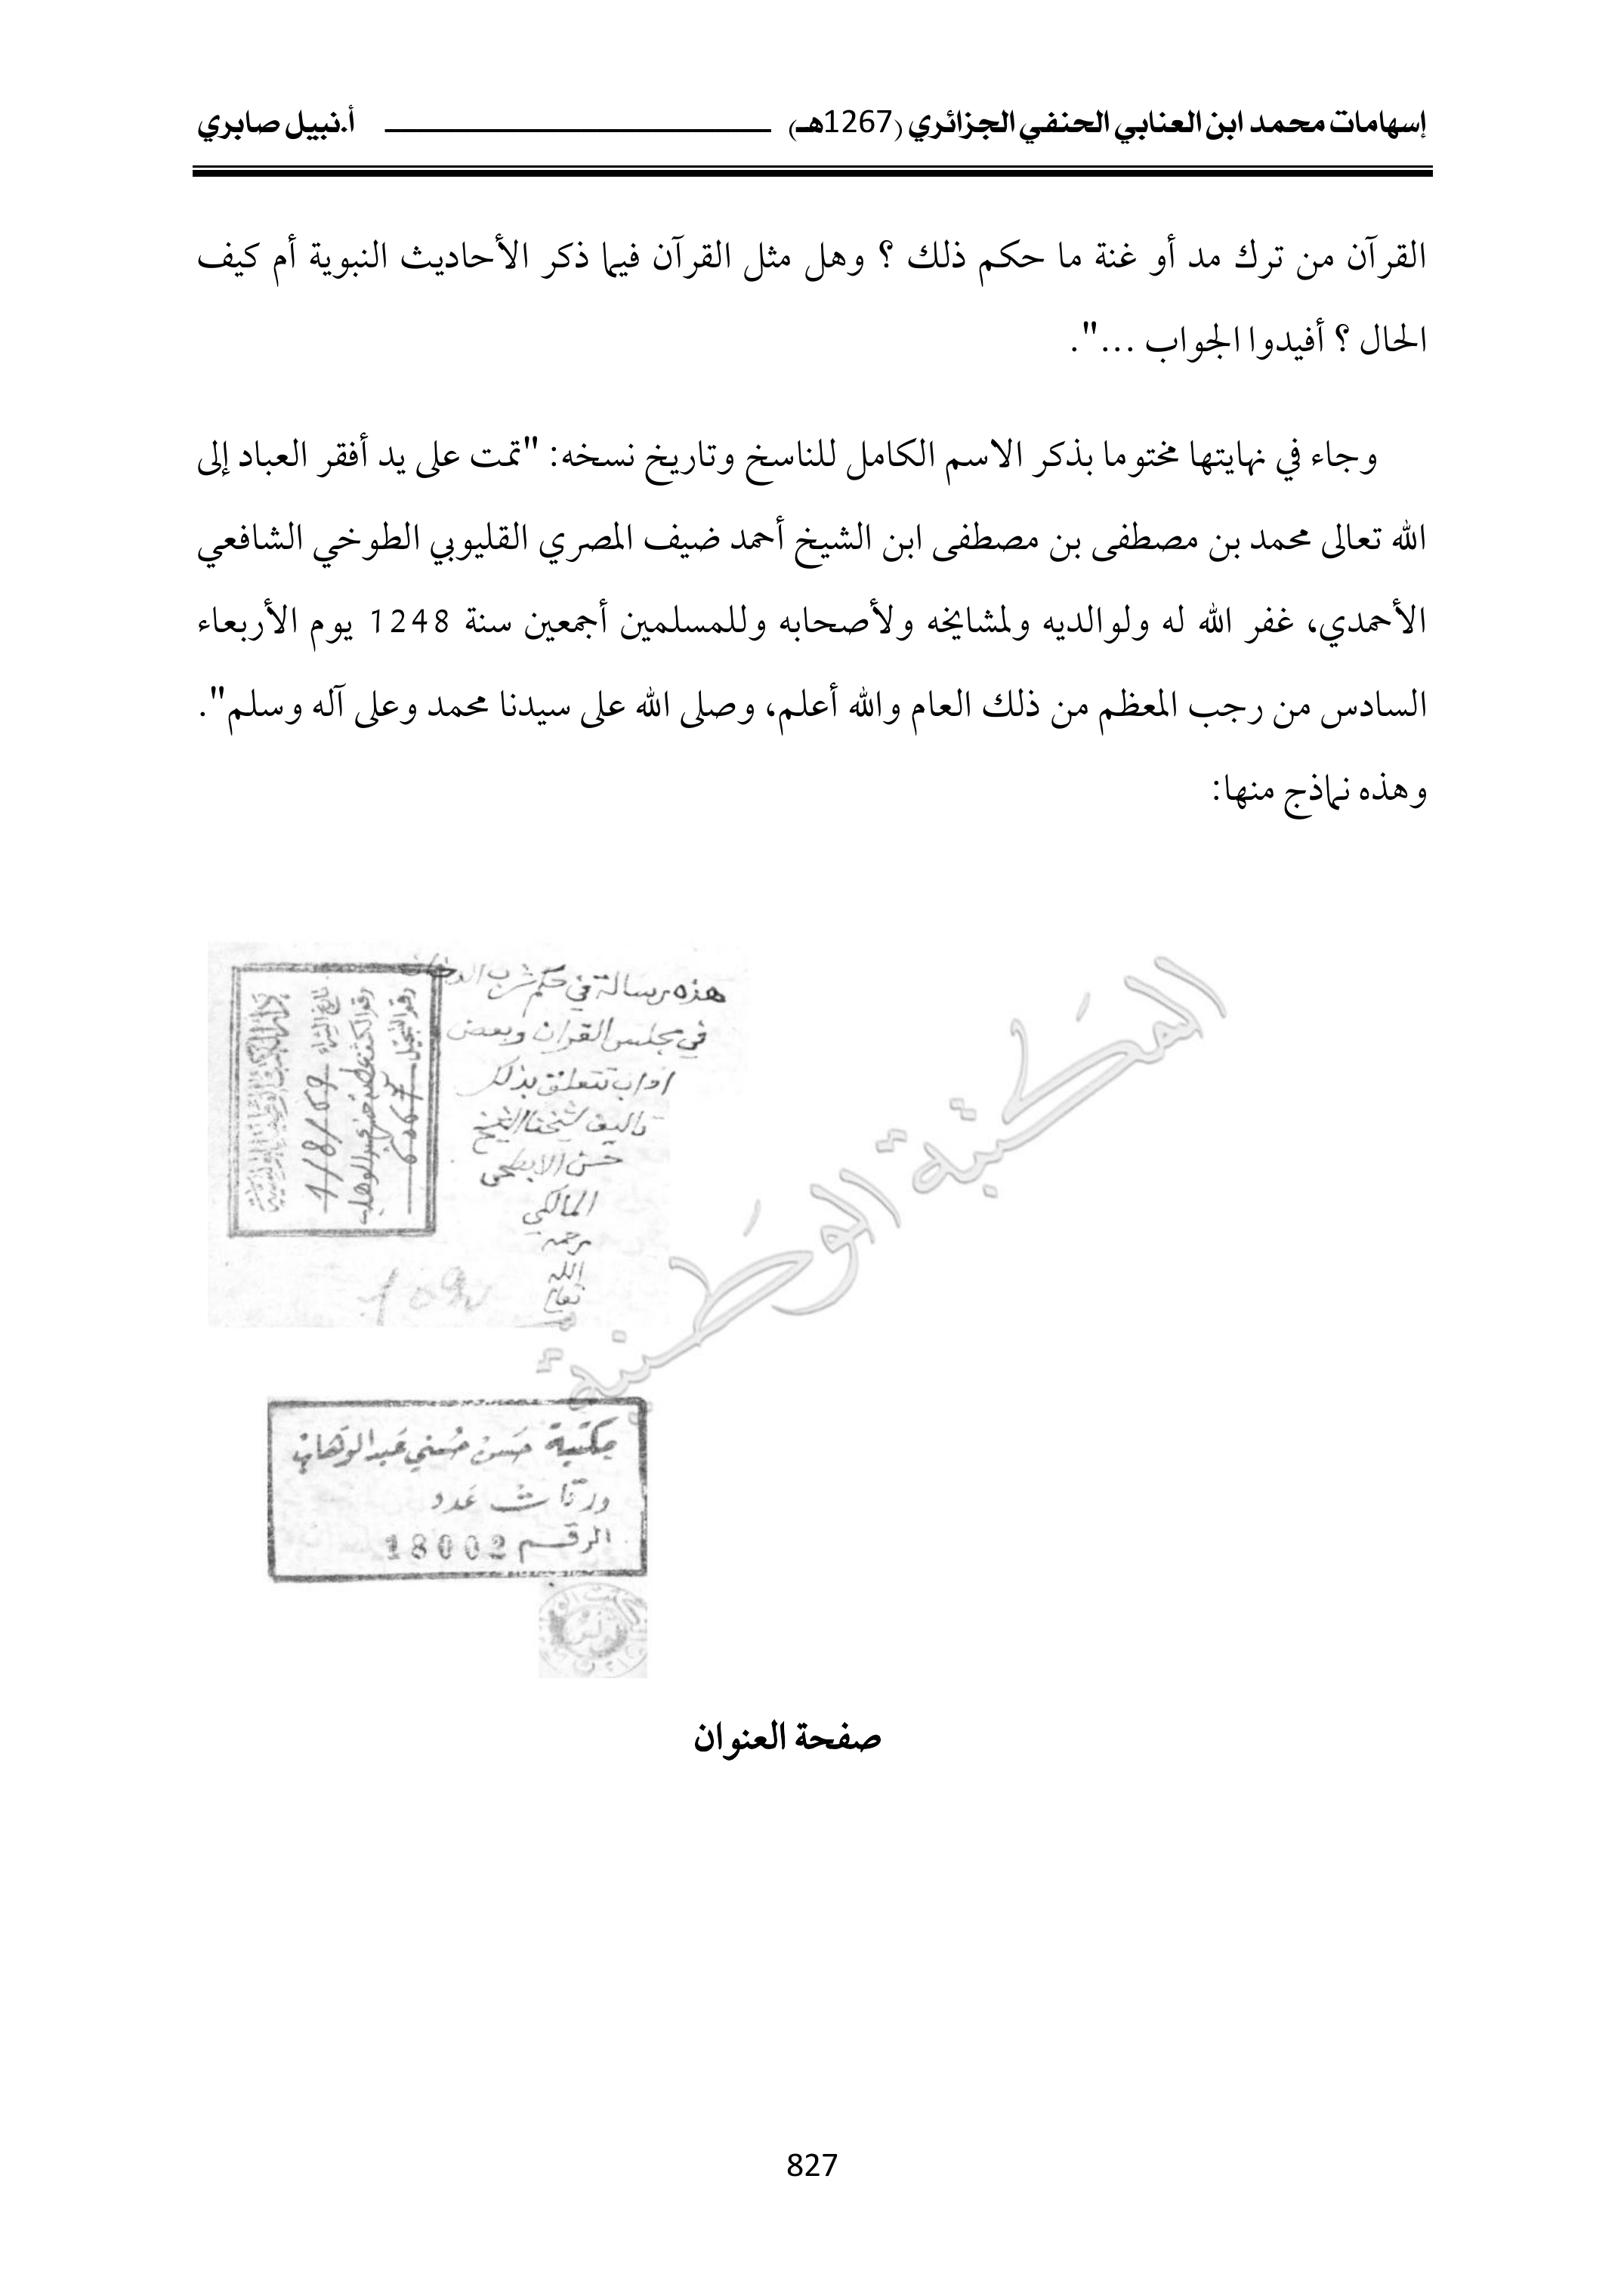 إسهامات محمد ابن العنابي الحنفي الجزائري (1267هـ) ـــــــــــــــــــــــــــــ أ.نبيل صابري
القرآن من ترك مد أو غنة ما حكم ذلك ؟ وهل مثل القرآن فيما ذكر الأحاديث النبوية أم كيف
الحال ؟ أفيدوا الجواب ...".
وجاء في نهايتها مختوما بذكر الاسم الكامل للناسخ وتاريخ نسخه: "تمت على يد أفقر العباد إلى
الله تعالى محمد بن مصطفى بن مصطفى ابن الشيخ أحمد ضيف المصري القليوبي الطوخي الشافعي
الأحمدي، غفر الله له ولوالديه ولمشايخه ولأصحابه وللمسلمين أجمعين سنة 1248 يوم الأربعاء
السادس من رجب المعظم من ذلك العام والله أعلم، وصلى الله على سيدنا محمد وعلى آله وسلم".
وهذه نماذج منها:
هذه رسالة في حكم شرب الدخان
في مجلس القران وبعض
اداب تتعلق بذلك
تاليف شيخنا الشيخ
حسن الابطحى
المالكي
رحمه
الله
تعالى
رقم التسجيل
رقم الكشف حسن حسني عبد الوهاب
تاريخ الشراء 1/8/69
المكتبة الوطنية
مكتبة حسن حسني عبد الوهاب
ورقات عدد
الرقم 18002
صفحة العنوان
827